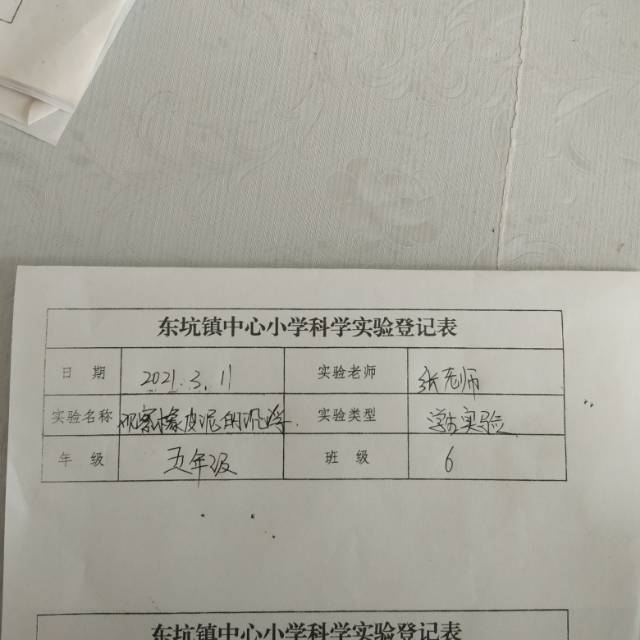 东坑镇中心小学科学实验登记表
日 期 2021.3.11 实验老师 张老师
实验名称 观察橡皮泥的沉浮. 实验类型 实验
年 级 五年级 班 级 6
东坑镇中心小学科学实验登记表